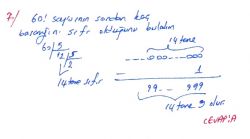 7/ 60! sayısının sondan kaç
basamağının sıfır olduğunu bulalım
60 | 5
12 | 5
2
14 tane sıfır
14 tane
------000---000
- 1
99-- 999
14 tane 9 olur
CEVAP: A